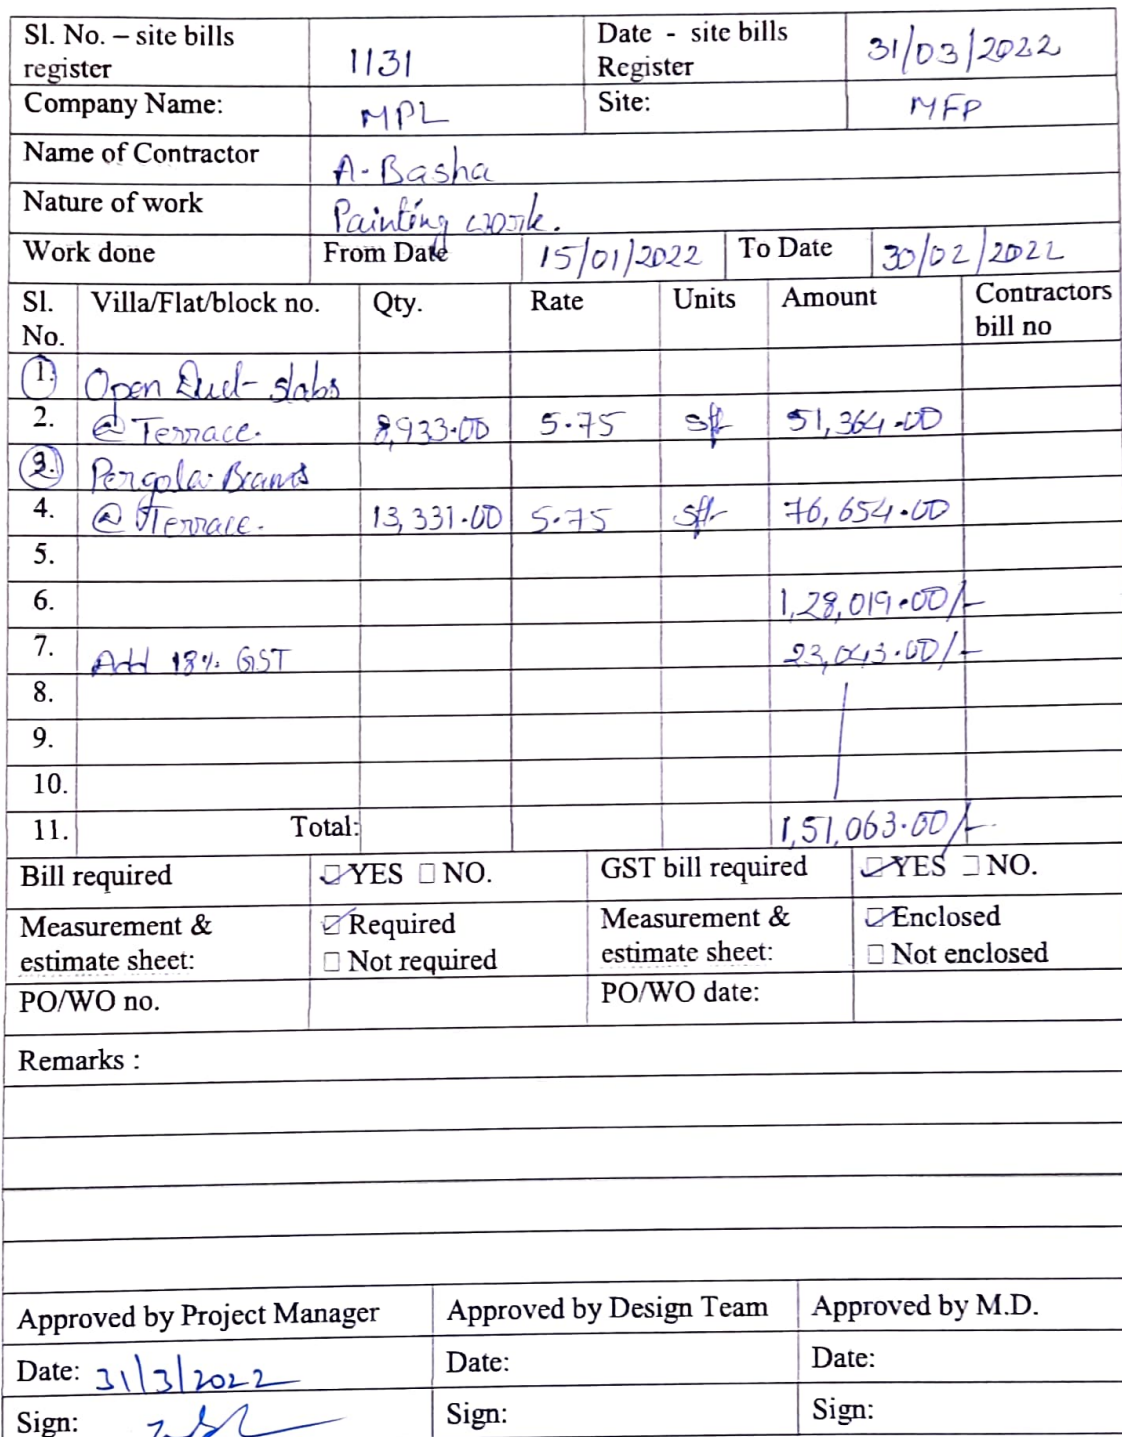 Sl. No. – site bills register 1131 Date - site bills Register 31/03/2022
Company Name: MPL Site: MFP
Name of Contractor A-Basha
Nature of work Painting work.
Work done From Date 15/01/2022 To Date 30/02/2022
Sl. No. Villa/Flat/block no. Qty. Rate Units Amount Contractors bill no
1. Open Dud-slabs
2. @ Terrace. 8,933.00 5.75 sft 51,364.00
3. Pergola Beams
4. @ Terrace. 13,331.00 5.75 sft 76,654.00
5.
6. 1,28,019.00/-
7. Add 18% GST 23,043.00/-
8.
9.
10.
11. Total: 1,51,063.00/-
Bill required YES NO. GST bill required YES NO.
Measurement & estimate sheet: Required Not required Measurement & estimate sheet: Enclosed Not enclosed
PO/WO no. PO/WO date:
Remarks :
Approved by Project Manager Approved by Design Team Approved by M.D.
Date: 31/3/2022 Date: Date:
Sign: Sign: Sign: